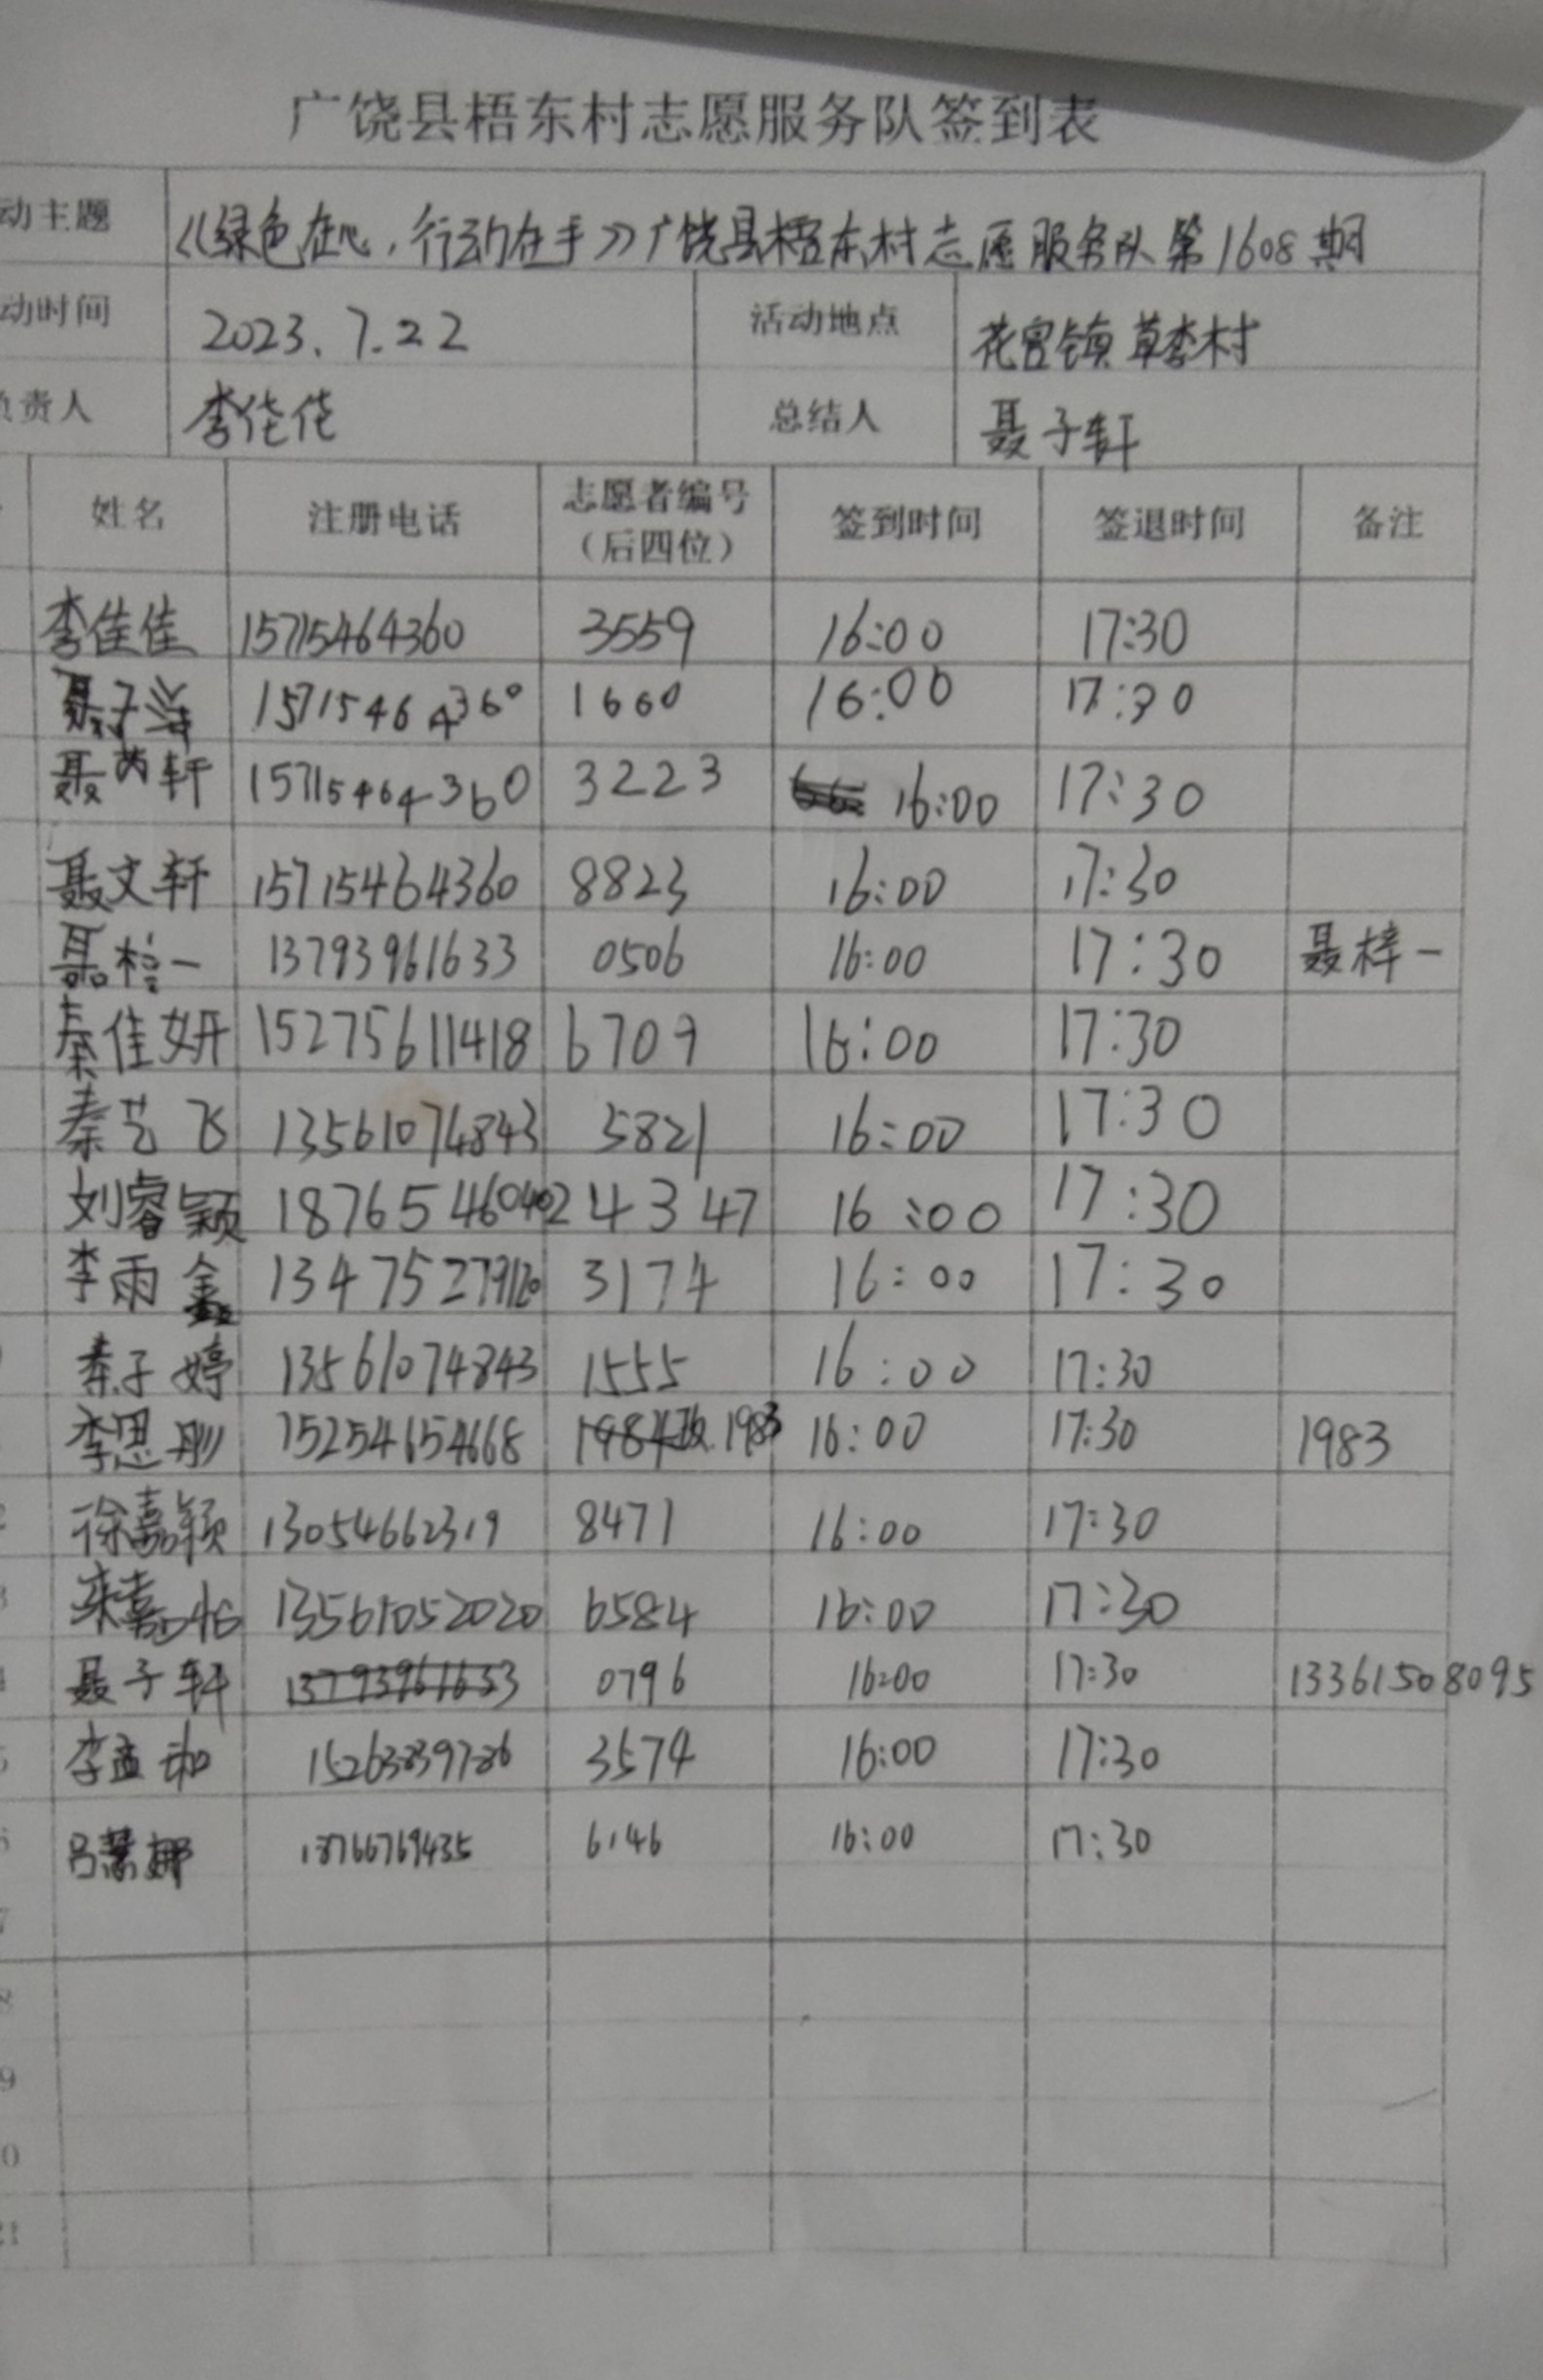 广饶县梧东村志愿服务队签到表
动主题 《绿色在心,行动在手》广饶县梧东村志愿服务队第1608期
动时间 2023.7.22 活动地点 花官镇草李村
负责人 李佳佳 总结人 聂子轩
姓名 注册电话 志愿者编号(后四位) 签到时间 签退时间 备注
李佳佳 15715464360 3559 16:00 17:30
聂子洋 15715464360 1660 16:00 17:30
聂芮轩 15715464360 3223 16:00 17:30
聂文轩 15715464360 8823 16:00 17:30
聂梓一 13793961633 0506 16:00 17:30 聂梓一
秦佳妍 15275611418 6709 16:00 17:30
秦艺飞 13561074843 5821 16:00 17:30
刘睿颖 18765460402 4347 16:00 17:30
李雨鑫 13475279120 3174 16:00 17:30
秦子婷 13561074843 1555 16:00 17:30
李思彤 15254654668 1984改.1983 16:00 17:30 1983
2 徐嘉颖 13054662319 8471 16:00 17:30
3 嘉怡 13561052020 6584 16:00 17:30
4 聂子轩 13793961633 0796 16:00 17:30 13361508095
5 李孟和 3574 16:00 17:30
6 吕慧娜 6146 16:00 17:30
7
8
9
0
21